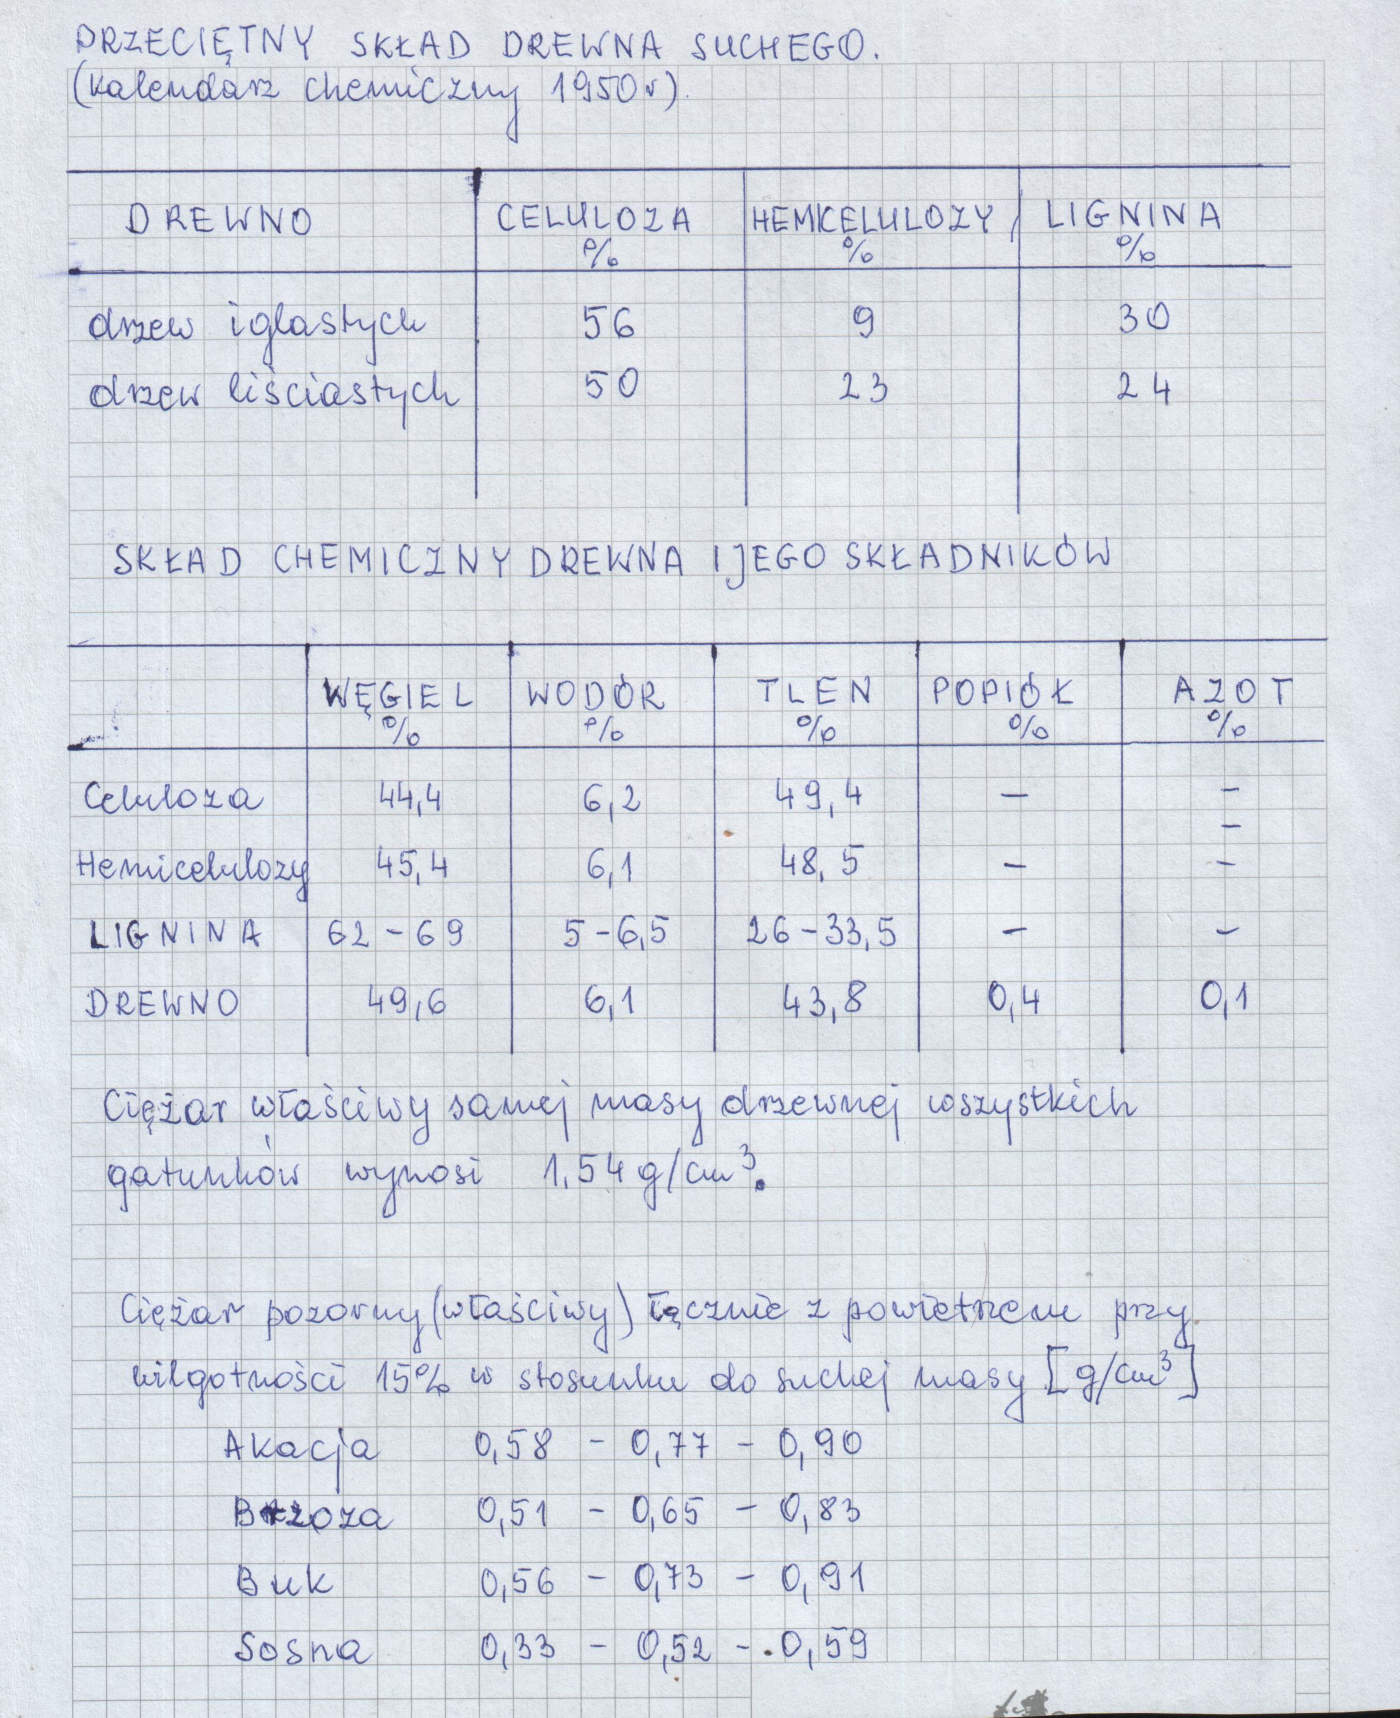 PRZECIĘTNY SKŁAD DREWNA SUCHEGO.
(Kalendarz chemiczny 1950r).
DREWNO CELULOZA HEMICELULOZY LIGNINA
% % %
drzew iglastych 56 9 30
drzew liściastych 50 23 24
SKŁAD CHEMICZNY DREWNA I JEGO SKŁADNIKÓW
WĘGIEL WODÓR TLEN POPIÓŁ AZOT
% % % % %
Celuloza 44,4 6,2 49,4 – –
–
Hemicelulozy 45,4 6,1 48,5 – –
LIGNINA 62-69 5-6,5 26-33,5 – –
DREWNO 49,6 6,1 43,8 0,4 0,1
Ciężar właściwy samej masy drzewnej wszystkich
gatunków wynosi 1,54 g/cm³.
Ciężar pozorny (właściwy) łącznie z powietrzem przy
wilgotności 15% w stosunku do suchej masy [g/cm³]
Akacja 0,58 - 0,77 - 0,90
Brzoza 0,51 - 0,65 - 0,83
Buk 0,56 - 0,73 - 0,91
Sosna 0,33 - 0,52 - 0,59